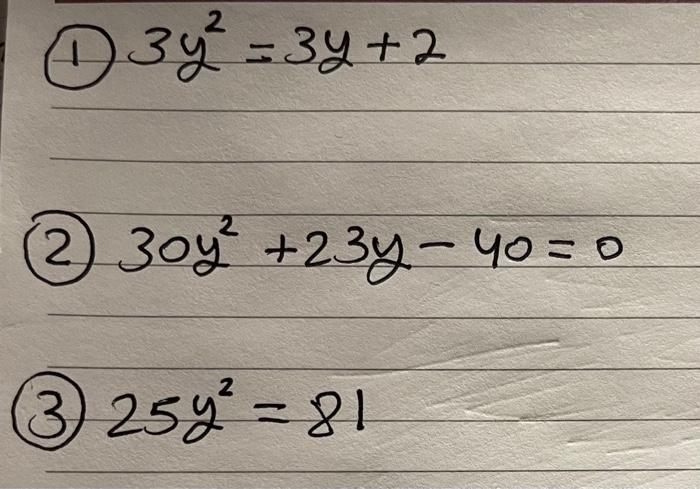 ① 3y² = 3y + 2
② 30y² + 23y - 40 = 0
③ 25y² = 81